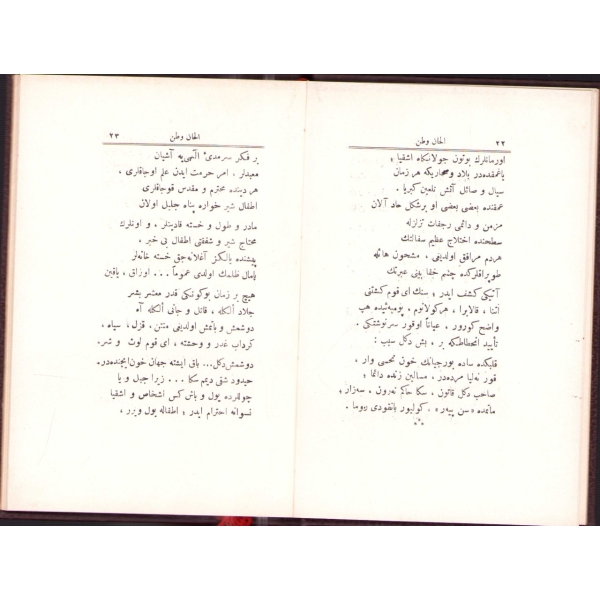 ٢٢
الحان وطن
اورمانلرك بوتون جولانكاه اشقیا ؛
یاغمقده‌در بلاد و صحاریكه هر زمان
سیال و صائل آتش تلعین كبریا .
عمقنده بعضی بعضی او برشكل حاد آلان
مزمن و دائمی رجفات تزازله
سطحنده اختلاج عظیم سفالتك
هردم مرافق اولدیغی ، مشحون هائله
طوپراقلركده چشم خفا بینی عبرتك
آتیكی كشف ایدر ، سنك ای قوم كشتنی
آتنا ، قالابرا ، هركولانوم ، پومپه‌ئیده هپ
واضح كورور ، عیاناً اوقور سرنوشتكی .
تأیید انحطاطكه بر ، بش دكل سبب :
قلبكده ساده بورجیانك خون محسی وار .
قور نه‌لیا مرده‌در ، مسالین زنده دائما ؛
صاحب دكل قانون ، سكا حاكم نه‌رون ، سه‌زار ؛
مانمده «سن پیه‌ر» ، كولیور بانغودی ییوما .
٢٣
الحان وطن
بر فكر سرمدیء الٓهی‌یه آشیان
معبدلر ، امر حرمت ایدن علم اوجاقلری ،
هر دینده محترم و مقدس قوجاقلری
اطفال شیر خواره پناه جلیل اولان
مادر و طول و خسته قادینلر ، و اونلرك
محتاج شیر و شفقتی اطفال بی خبر ،
پیشنده یالكز آغلانه‌جق خسته خانه‌لر
پامال ظلمك اولدی عموماً ... اوزاق ، یاقین
هیچ بر زمان بوكونكی قدر معشر بشر
جلاد آلكله ، قاتل و جانی آلكله آه
دوشمش و باتمش اولدیغی منتن ، قزل ، سیاه ،
كرداب غدر و وحشته ، ای قوم لوث و شر .
دوشمش دكل ... باق ایشته جهان خون ایچنده‌در.
حیدود شقی دیم سكا ... زیرا چیل و یا
چوللرده یول و باش كسن اشخاص و اشقیا
نسوانه احترام ایدر ؛ اطفاله یول ویرر ،